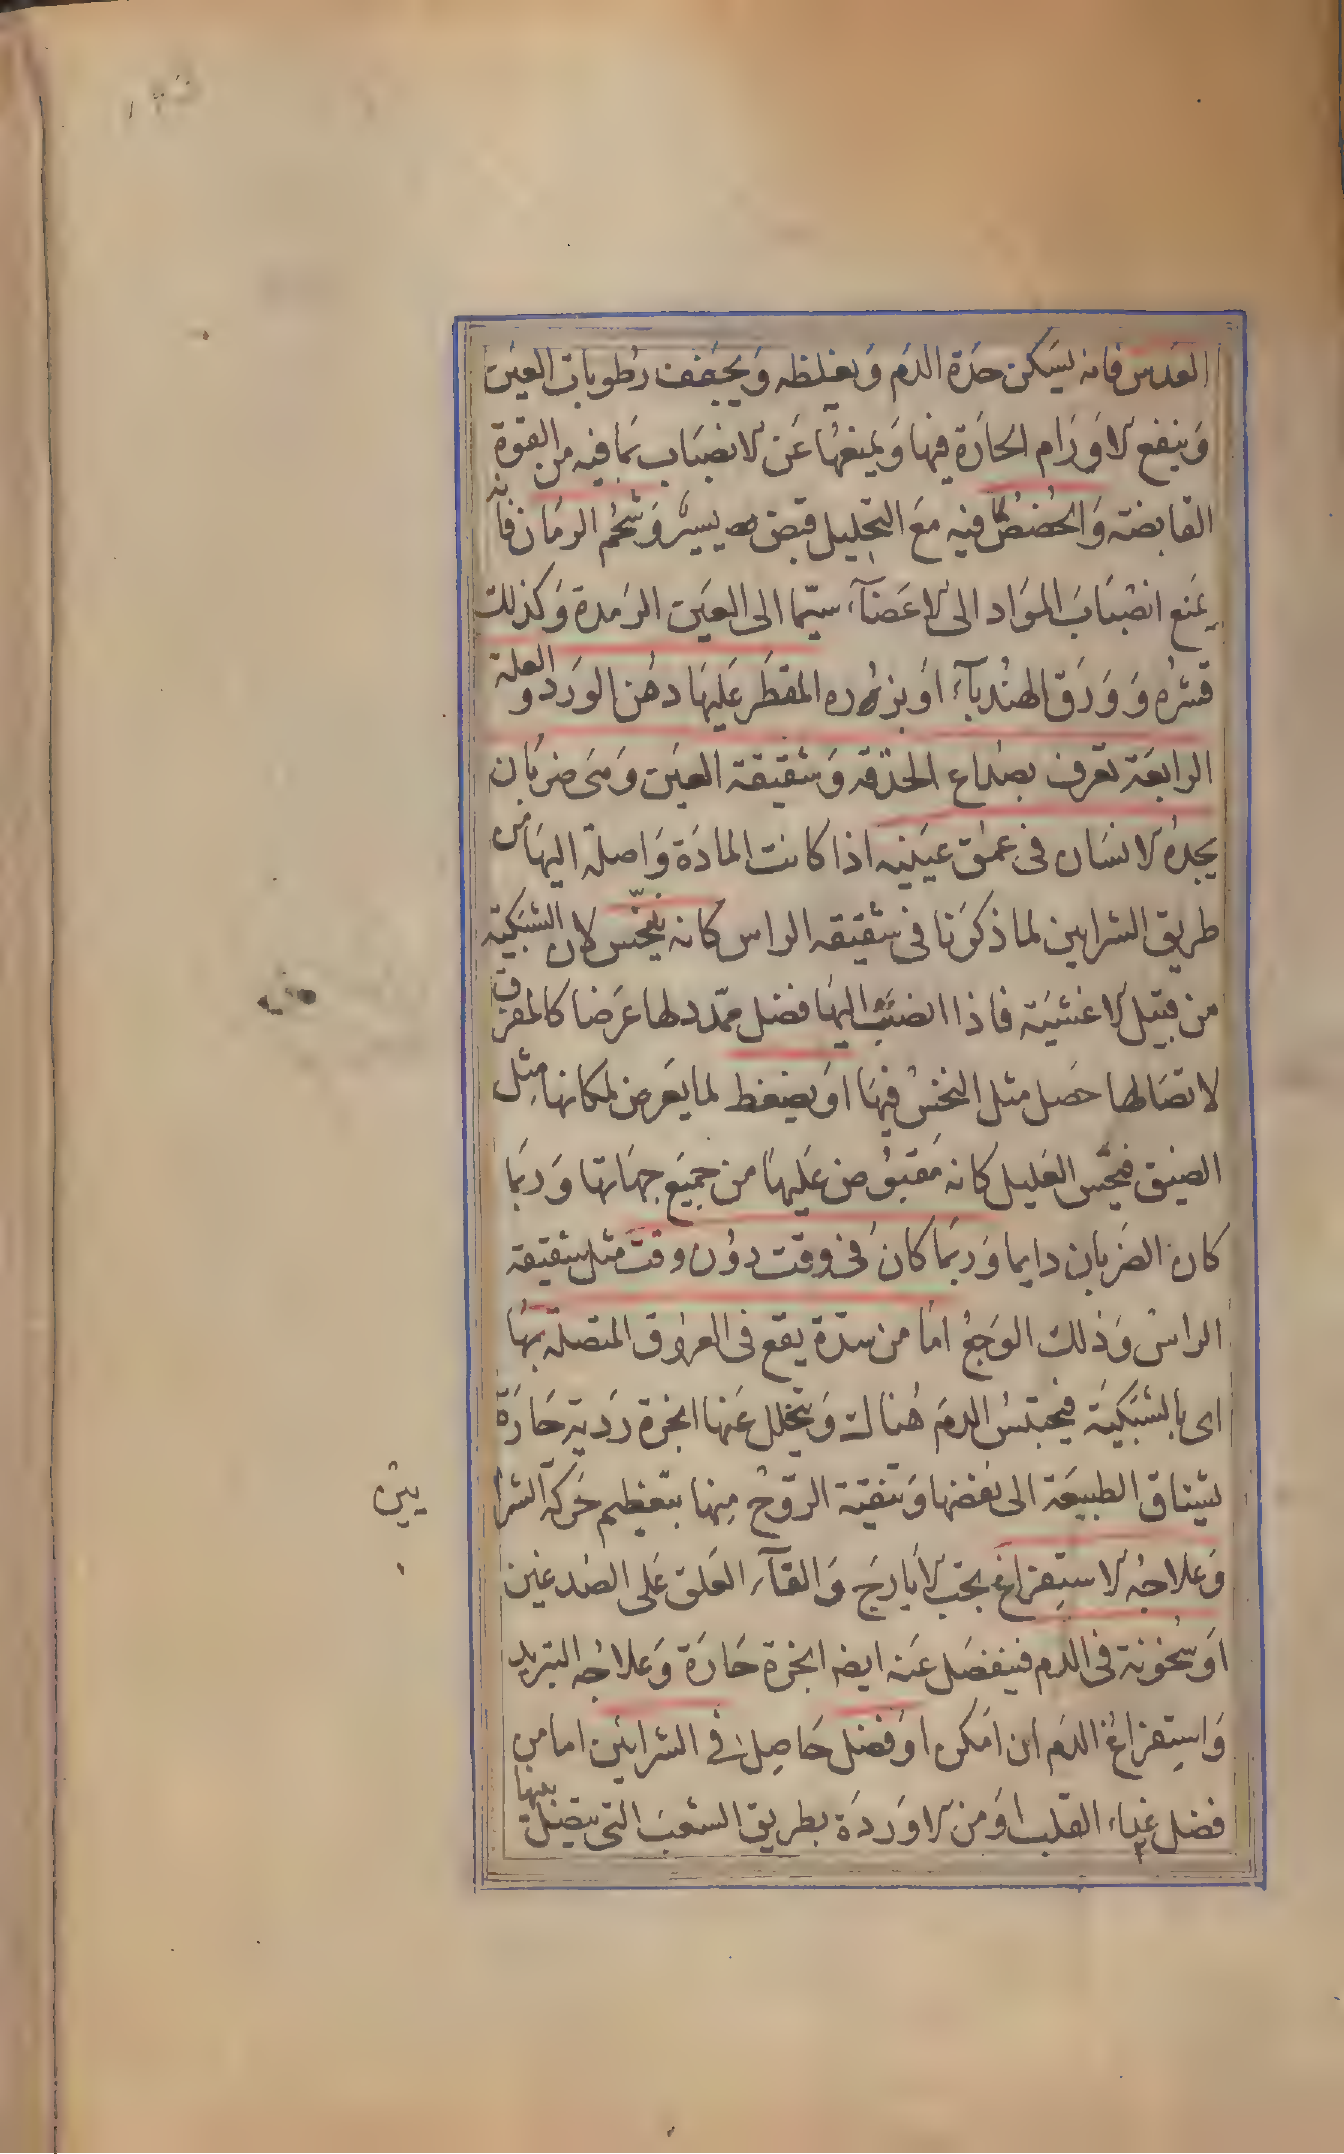 العدس فانه يسكن حدة الدم ويغلظه ويجفف رطوبات العين
وينفع الاورام الحارة فيها ويمنعها عن الانصباب بما فيه من القوة
القابضة والحضض فيه مع التحليل قبض يسير وشحم الرمان فانه
يمنع انصباب المواد الى الاعضآء سيما الى العين الرمدة وكذلك
قشره وورق الهندبآء او بزره المقطر عليها دهن الورد والعلة
الرابعة تعرف بصداع الحدقه وشقيقة العين وهى ضربان
يجده الانسان فى عمق عينيه اذا كانت المادة واصلة اليها من
طريق الشرايين لما ذكرنا فى شقيقه الراس كانه ينخس لان الشبكية
من قبيل الاغشية فاذا انصب اليها فضل ممدد لها عرضا كالمفرق
لاتصالها حصل مثل النخس فيها او يضغط لما يعرض لمكانها مثل
الضيق فيحس العليل كانه مقبوض عليها من جميع جهاتها وربما
كان الضربان دايما وربما كان فى وقت دون وقت مثل شقيقة
الراس وذلك الوجع اما من سدة يقع فى العروق المتصلة بها
اى بالشبكية فيحتبس الدم هناك ويتحلل عنها ابخرة ردية حارة
يشتاق الطبيعة الى نفضها وتنقية الروح منها بتعظيم حركة الشرا
يين
وعلاجه الاستفراغ بحب الايارج والقآء العلق على الصدغين
او سخونة فى الدم فينفصل عنه ايضه ابخرة حارة وعلاجه التبريد
واستفراغ الدم ان امكن او فضل حاصل فى الشرايين اما من
فضل غذاء القلب او من الاوردة بطريق الشعب التى يتصل بينها